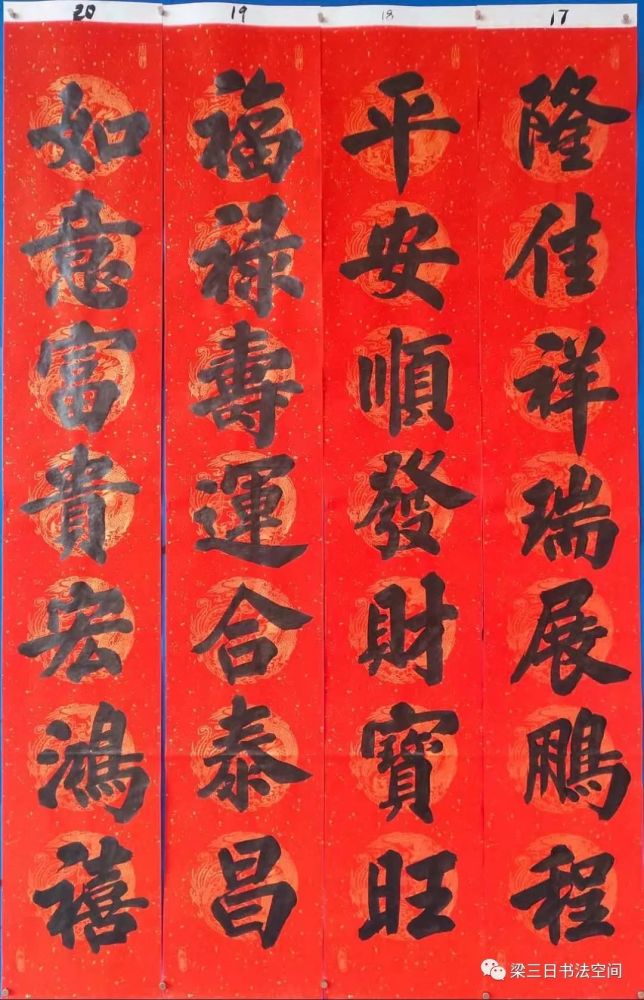 17
隆佳祥瑞展鵬程
18
平安順發財寶旺
19
福禄壽運合泰昌
20
如意富貴宏鴻禧
梁三日书法空间